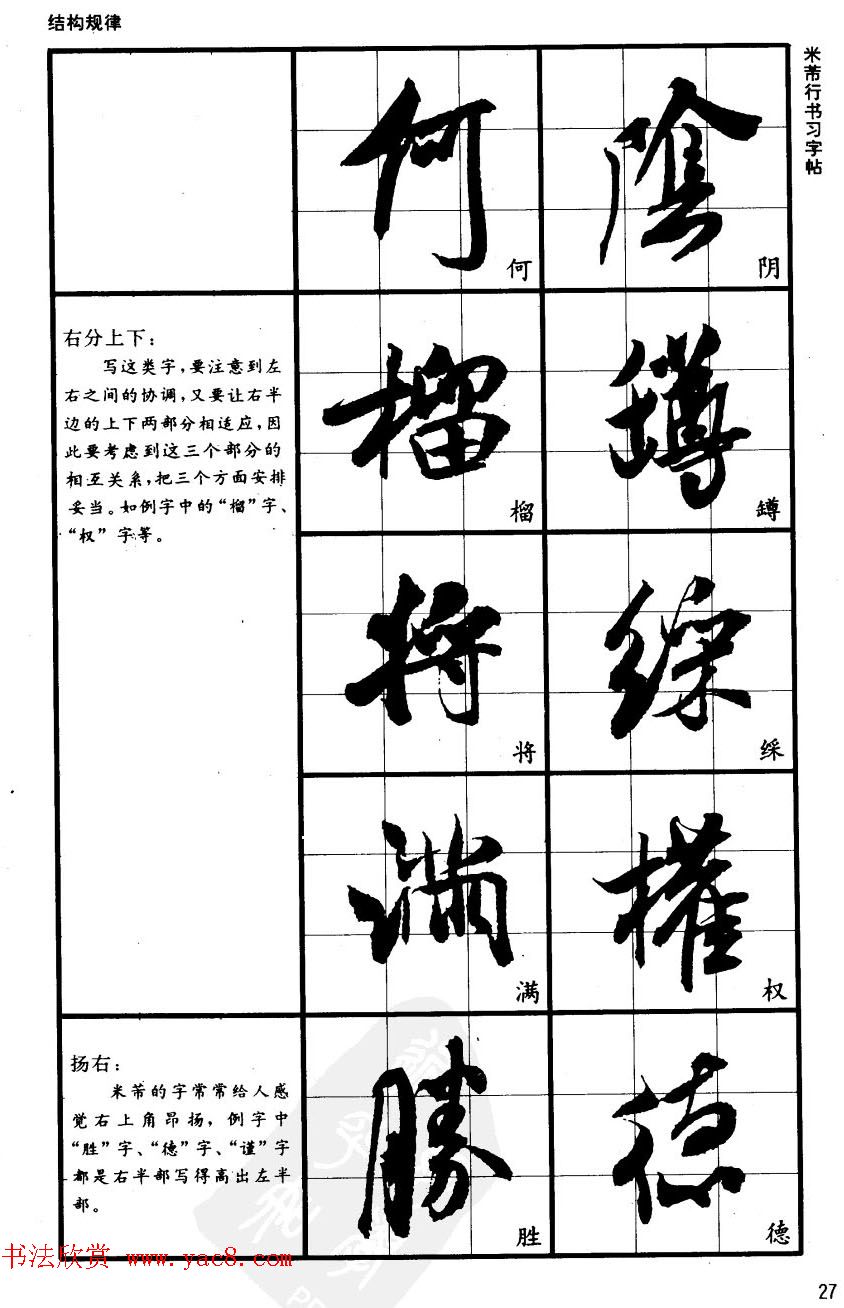 结构规律
米芾行书习字帖
何
陰
何
阴
右分上下：
写这类字，要注意到左
右之间的协调，又要让右半
边的上下两部分相适应，因
此要考虑到这三个部分的
相互关系，把三个方面安排
妥当。如例字中的“榴”字、
“权”字等。
榴
罇
榴
罇
将
綵
将
綵
满
權
满
权
扬右：
米芾的字常常给人感
觉右上角昂扬，例字中
“胜”字、“德”字、“谨”字
都是右半部写得高出左半
部。
勝
德
胜
德
书法欣赏 www.yac8.com
27